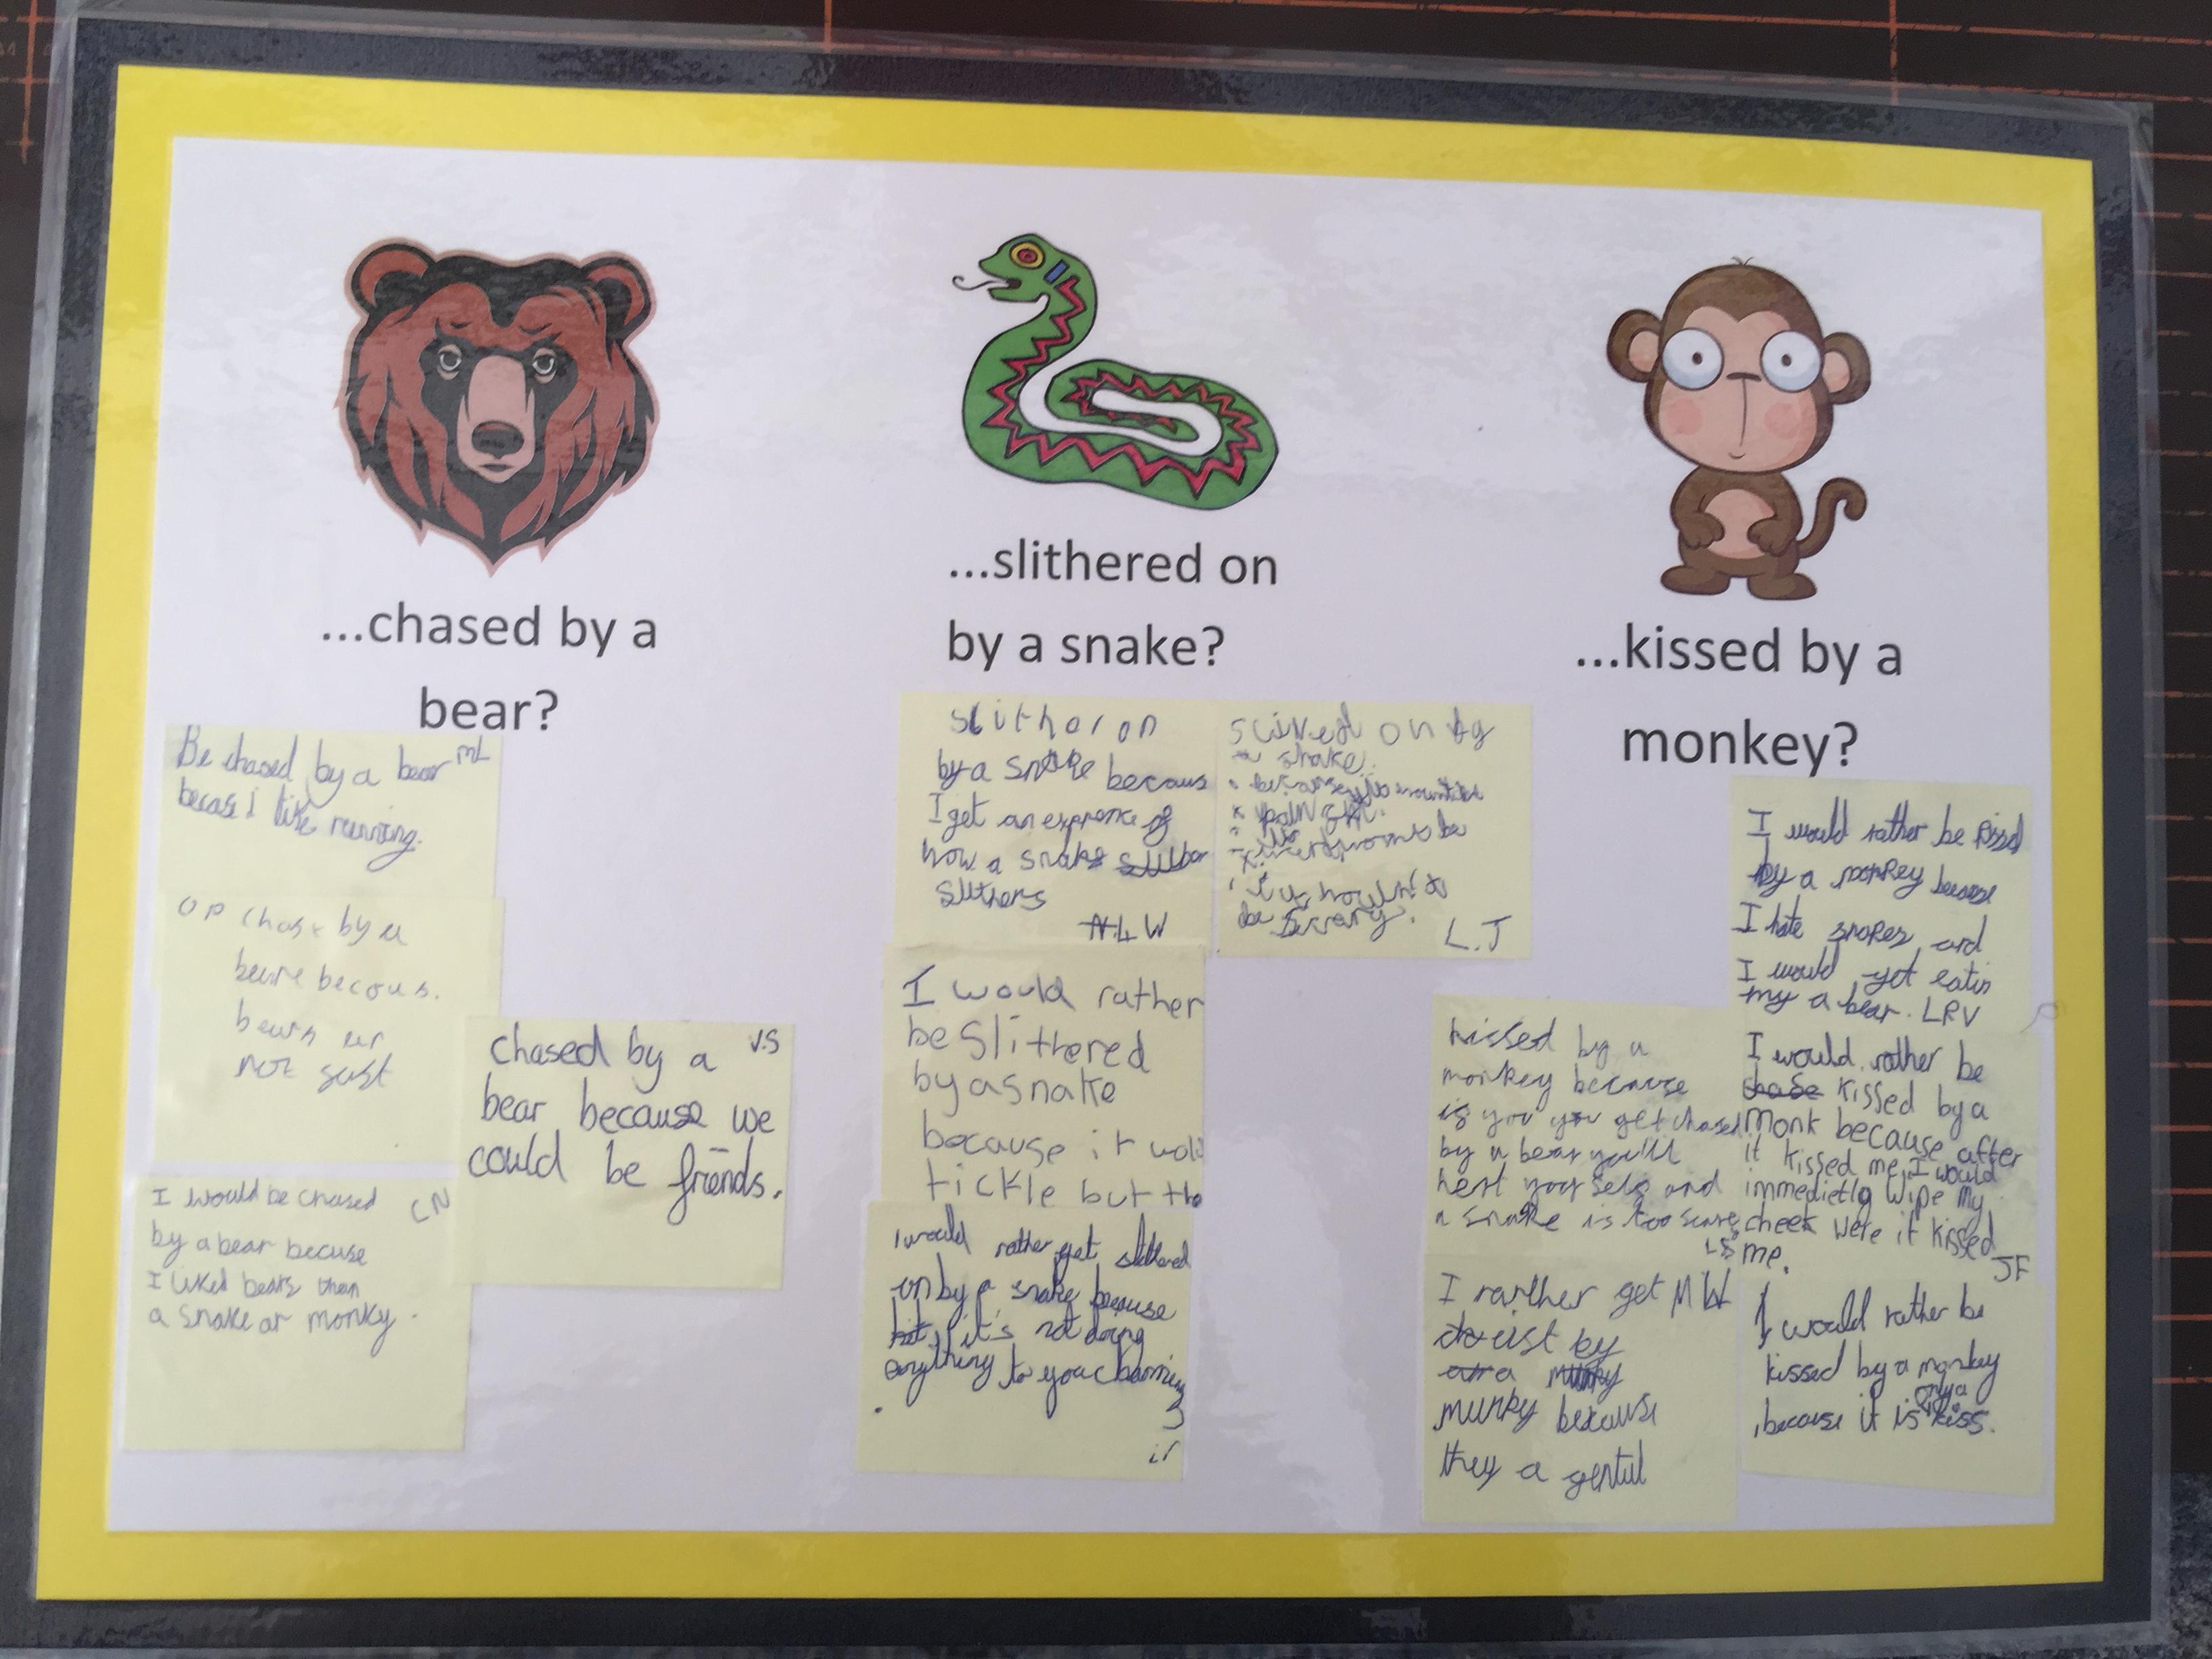 ...chased by a
bear?
Be chased by a bear ML
becase i like running.
OP chase by a
beare becous.
bears er
not sast
I would be chased LN
by a bear becuse
I liked bears than
a snake or monky.
chased by a V.S
bear because we
could be friends.
...slithered on
by a snake?
slither on
by a snake becaus
I get an exprence of
how a snake
slithers
N.L W
on by
a snake.
it wouldn't
be scarry.
L.J
I would rather
be slithered
by a snake
because it wold
tickle but the
I would rather get slithered
on by a snake because
it's not doing
anything to you
...kissed by a
monkey?
I would rather be kissd
by a monkey because
I hate snakes and
I would get eatin
my a bear. LRV
kissed by a
monkey because
is you you get chased
by a bear you'll
hert yourself and
a snake is too scarey
LS
I would rather be
chase kissed by a
monk because after
it kissed me, I would
immedietly wipe my
cheek were it kissed
me. JF
I rarther get MW
by
a
munky because
they a gentul
I would rather be
kissed by a monkey
because it is only a kiss.